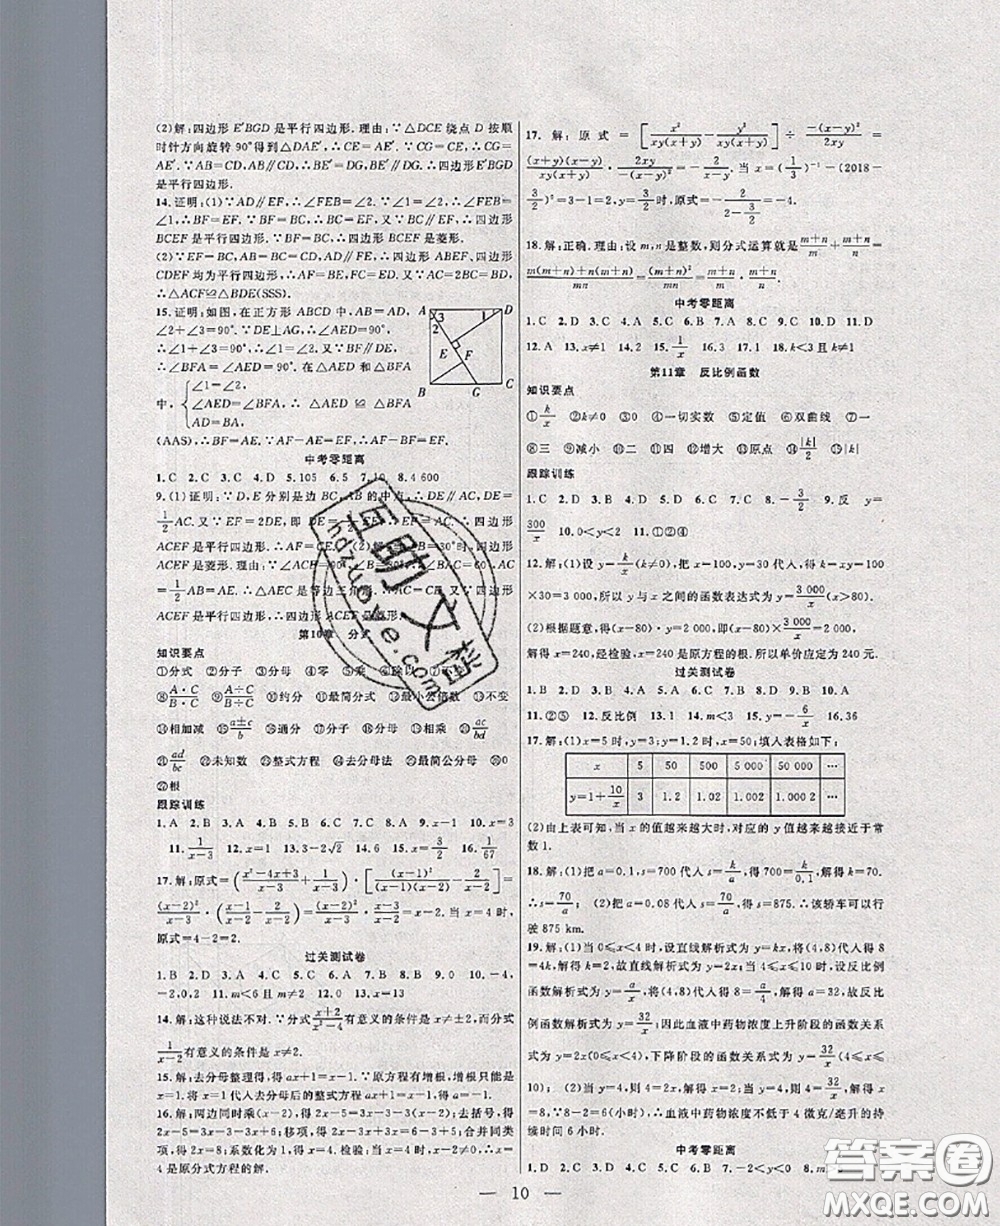 (2)解:四边形E′BGD是平行四边形.理由:∵△DCE绕点D按顺
时针方向旋转90°得到△DAE′,∴CE=AE′.∵CG=CE,∴CG=
AE′.∵AB=CD,AB∥CD,∴BE′=DG,BE′∥DG,∴四边形E′BGD
是平行四边形.
14.证明:(1)∵AD∥EF,∴∠FEB=∠2.∵∠1=∠2,∴∠FEB=
∠1,∴BF=EF.∵BF=BC,∴BC=EF.又∵BC∥EF,∴四边形
BCEF是平行四边形.∵BF=BC,∴四边形BCEF是菱形.
(2)∵EF=BC,AB=BC=CD,AD∥FE,∴四边形ABEF、四边形
CDEF均为平行四边形,∴AF=BE,FC=ED.又∵AC=2BC=BD,
∴△ACF≌△BDE(SSS).
15.证明:如图,在正方形ABCD中,AB=AD,
∠2+∠3=90°.∵DE⊥AG,∴∠AED=90°,
∴∠1+∠3=90°,∴∠1=∠2.∵BF∥DE,
∴∠BFA=∠AED=90°.在△AED和△BFA
中,{∠1=∠2,
∠AED=∠BFA,∴△AED≌△BFA
AD=BA,
(AAS),∴BF=AE.∵AF−AE=EF,∴AF−BF=EF.
A D B G C E F 1 2 3
中考零距离
1.C 2.D 3.C 4.D 5.105 6.5 7.10 8.4 600
9.(1)证明:∵D,E分别是边BC,AB的中点,∴DE∥AC,DE=
1/2 AC.又∵EF=2DE,即DE=1/2 EF,∴EF=AC.∴四边形
ACEF是平行四边形,∴AF=CE.(2)解:当∠B=30°时,四边形
ACEF是菱形.理由:∵∠ACB=90°,∠B=30°,∴AC=1/2 AB
=AE,∴△AEC是等边三角形,∴AC=CE,∴四边形
ACEF是菱形.
第10章 分式
知识要点
①分式 ②分母 ③分母 ④零 ⑤乘 ⑥除以 ⑦不变
⑧A·C/B·C ⑨A÷C/B÷C ⑩约分 ⑪最简分式 ⑫最小公倍数 ⑬不变
⑭相加减 ⑮a±c/b ⑯通分 ⑰分子 ⑱分母 ⑲相乘 ⑳ac/bd
㉑ad/bc ㉒未知数 ㉓整式方程 ㉔去分母法 ㉕最简公分母 ㉖0
㉗根
跟踪训练
1.A 2.B 3.A 4.A 5.A 6.D 7.D 8.D 9.x−1 10.x=3
11.1/(x−3) 12.x=0 13.3−2√2 14.x=4 15.x=3/2 16.1/67
17.解:原式=((x²−4x+3)/(x−3)+1/(x−3))·[(x−1)²/((x−1)(x−2))−2/(x−2)]=
(x−2)²/(x−3)·((x−1)/(x−2)−2/(x−2))=(x−2)²/(x−3)·(x−3)/(x−2)=x−2.当x=4时,
原式=4−2=2.
过关测试卷
1.B 2.D 3.A 4.C 5.C 6.D 7.D 8.B 9.C 10.−4,
−2,0,2 11.m<6且m≠2 12.0 13.x=13
14.解:这种说法不对.∵分式(x+2)/(x²−4)有意义的条件是x≠±2,而分式
1/(x−2)有意义的条件是x≠2.
15.解:去分母整理得,得ax+1=x−1.∵原方程有增根,增根只能是
x=1,将x=1代入去分母后的整式方程ax+1=x−1,得a=−1.
16.解:两边同时乘(x−2),得2x=(x−2)+2(x+3);去括号,得
2x=x−2+2x+6;移项,得2x−x−2x=−2+6;合并同类
项,得−x=4;系数化为1,得x=4.检验:当x=4时,x−2≠0,∴x=
4是原分式方程的解.
17.解:原式=[x²/(xy(x+y))−y²/(xy(x+y))]÷−(x−y)²/2xy=
(x+y)(x−y)/(xy(x+y))·2xy/(−(x−y)²)=−2/(x−y).当x=(1/3)⁻¹−(2018−
3/2)⁰=3−1=2,y=3/2时,原式=−2/(2−3/2)=−4.
18.解:正确.理由:设m,n是整数,则分式运算就是(m+n)/m+(m+n)/n=
(m(m+n)+n(m+n))/mn=(m+n)²/mn=(m+n)/m·(m+n)/n.
中考零距离
1.C 2.D 3.A 4.A 5.A 6.B 7.D 8.D 9.A 10.A 11.D
12.A 13.x≠1 14.2 15.1/x 16.3 17.1 18.k<3且k≠1
第11章 反比例函数
知识要点
①k/x ②k≠0 ③0 ④一切实数 ⑤定值 ⑥双曲线 ⑦一
⑧三 ⑨减小 ⑩二 ⑪四 ⑫增大 ⑬原点 ⑭|k| ⑮|k|/2
跟踪训练
1.C 2.D 3.B 4.D 5.D 6.C 7.C 8.−3/2 9.反 y=
300/x 10.0<y<2 11.①②④
12.解:(1)设y=k/x(k≠0),把x=100,y=30代入,得k=100
×30=3000,所以y与x之间的函数表达式为y=3 000/x(x>80).
(2)根据题意,得(x−80)·y=(x−80)×3 000/x=2 000,
解得x=240,经检验,x=240是原方程的根.所以单价应定为240元.
过关测试卷
1.B 2.D 3.C 4.D 5.D 6.C 7.B 8.D 9.B 10.A
11.②③ 12.反比例 13.1 14.m<3 15.y=−6/x 16.36
17.解:(1)x=5时,y=3;y=1.2时,x=50;填入表格如下:
x 5 50 500 5 000 50 000 ⋯
y=1+10/x 3 1.2 1.02 1.002 1.000 2 ⋯
(2)由上表可知,当x的值越来越大时,对应的y值越来越接近于常
数1.
18.解:(1)把a=0.1,s=700代入s=k/a,得700=k/0.1,解得k=70.
∴s=70/a.(2)把a=0.08代入s=70/a,得s=875.∴该轿车可以行
驶875 km.
19.解:(1)当0≤x<4时,设直线解析式为y=kx,将(4,8)代入得8
=4k,解得k=2,故直线解析式为y=2x;当4≤x≤10时,设反比例
函数解析式为y=a/x,将(4,8)代入得8=a/4,解得a=32,故反比
例函数解析式为y=32/x;因此血液中药物浓度上升阶段的函数关系
式为y=2x(0≤x<4),下降阶段的函数关系式为y=32/x(4≤x≤
10);(2)当y=4,则4=2x,解得x=2,当y=4,则4=32/x,解得
x=8,∵8−2=6(小时),∴血液中药物浓度不低于4微克/毫升的持
续时间6小时.
中考零距离
1.D 2.D 3.A 4.C 5.B 6.A 7.D 8.
— 10 —
互助文档
hdzuoye.com
答案圈
MXQE.COM